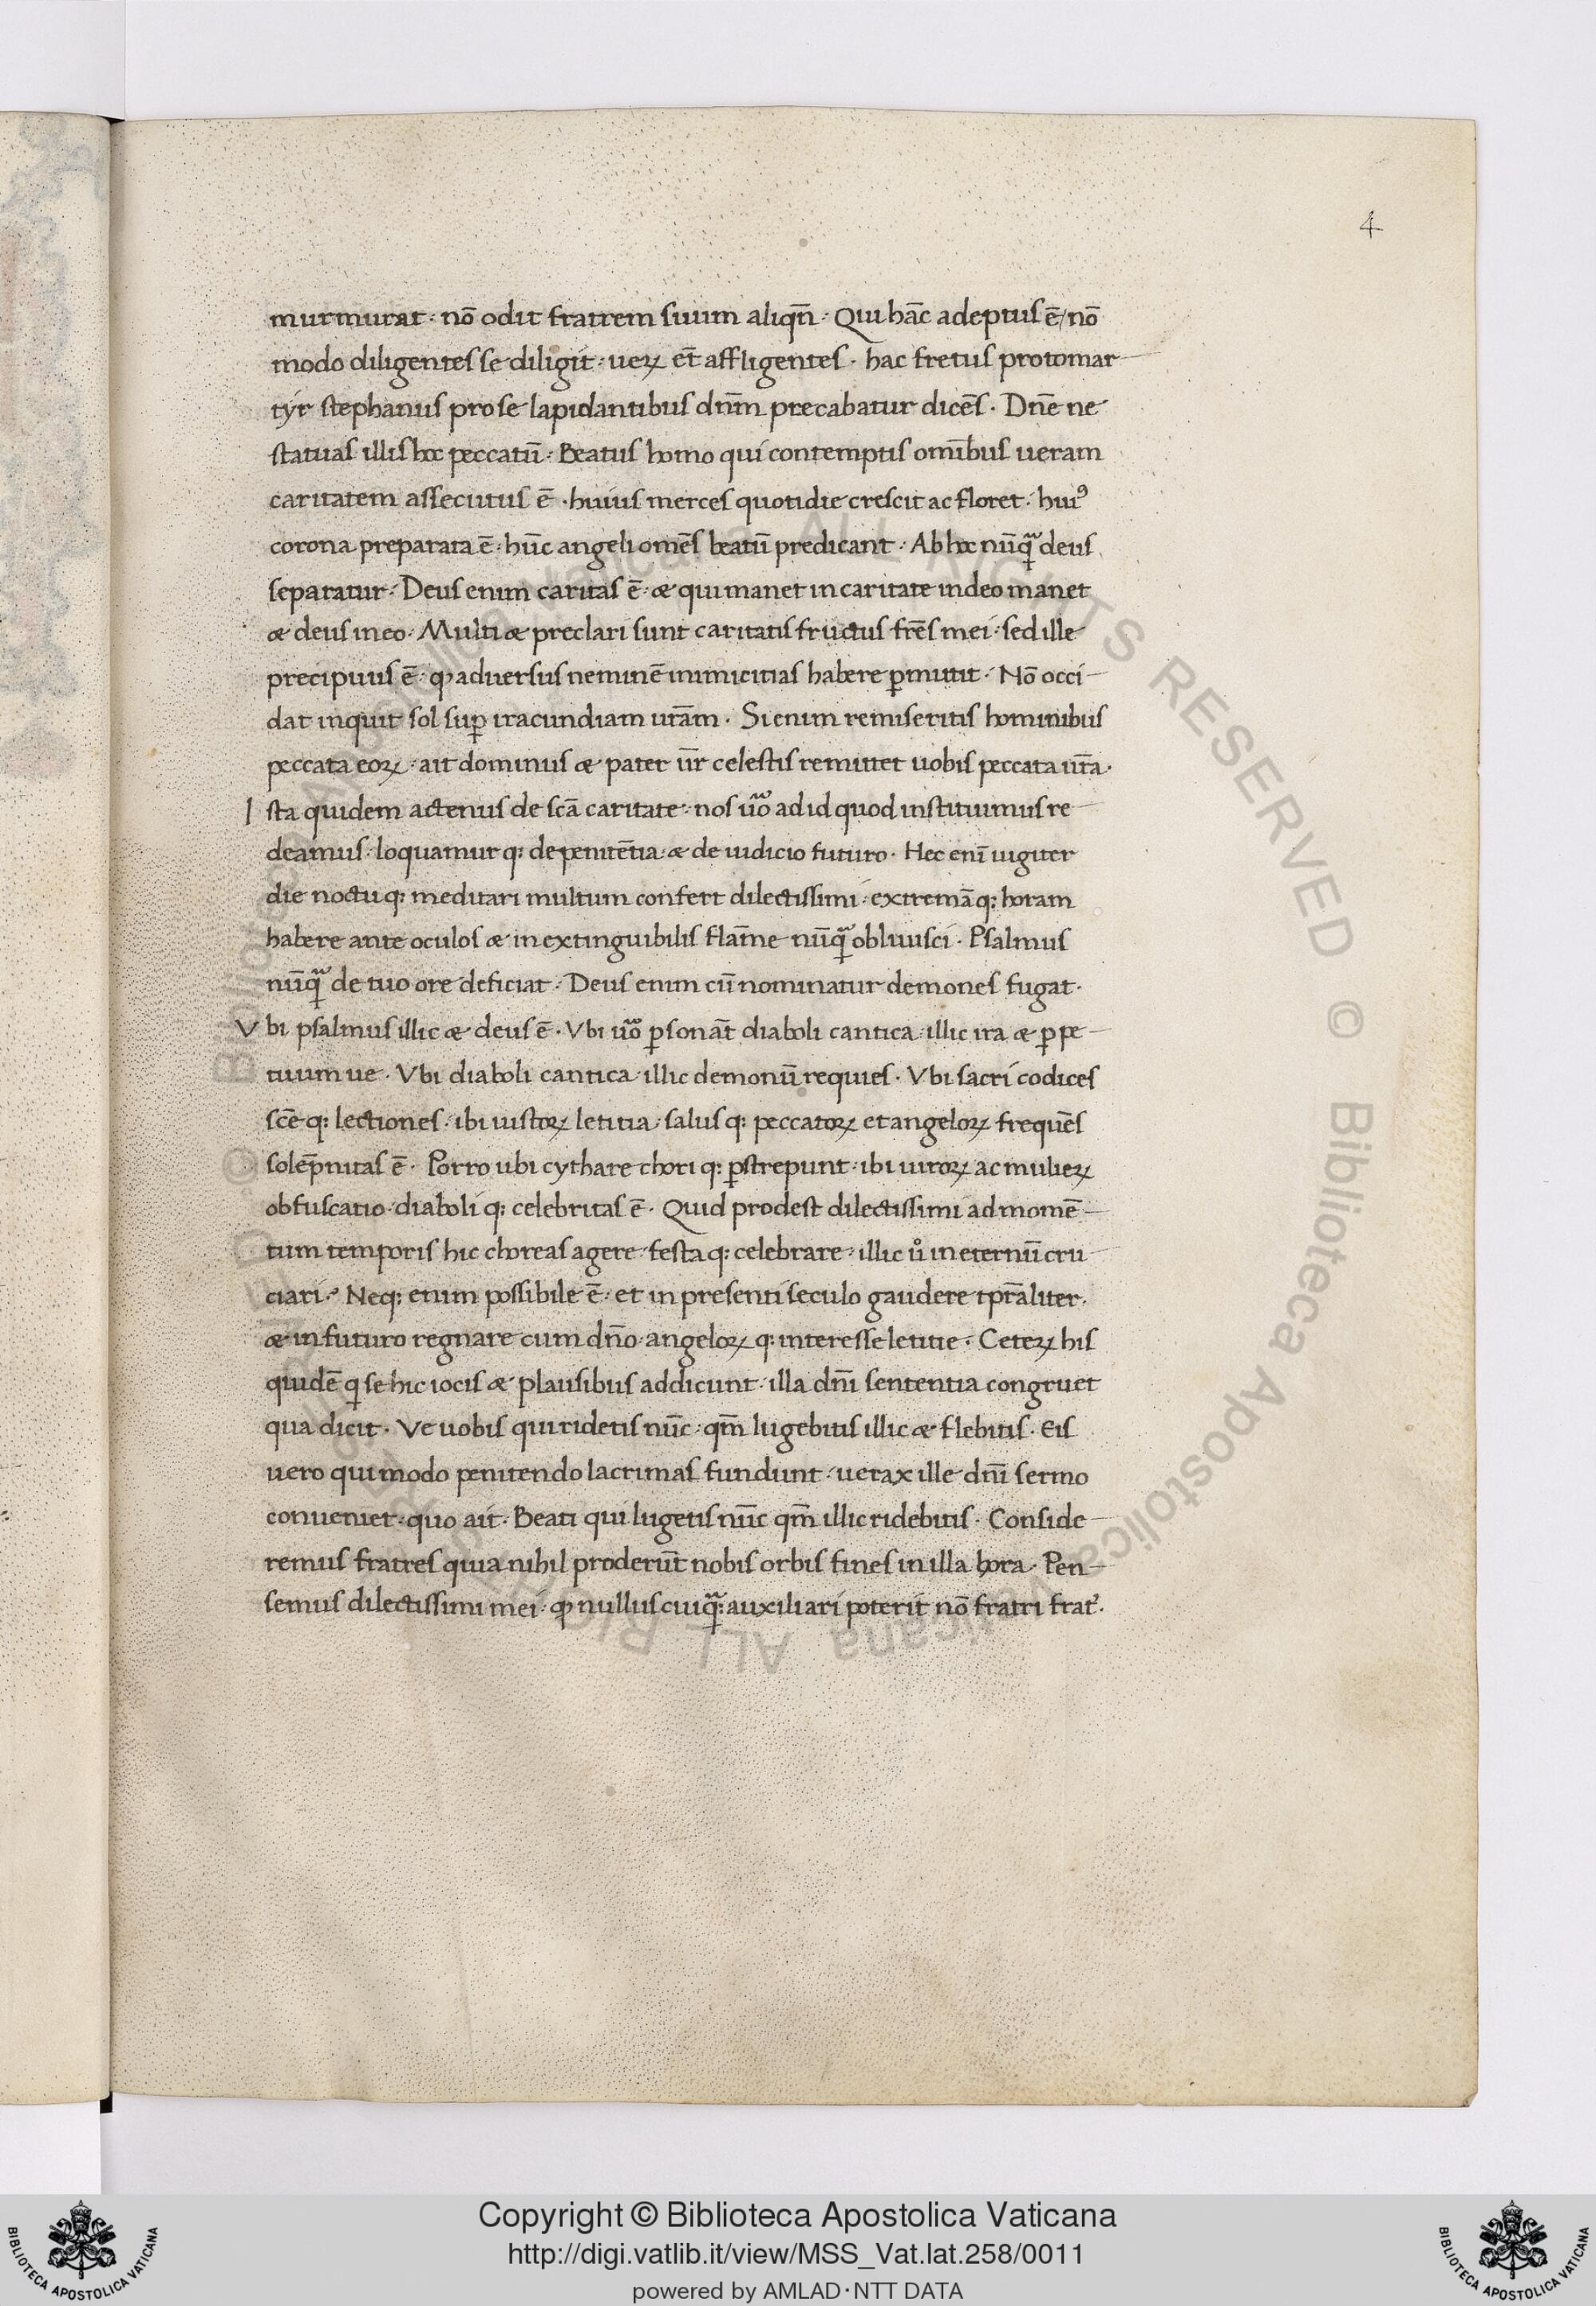 4
murmurat · nō odit fratrem suum aliqn̄ · Qui hāc adeptus ē / nō
modo diligentes se diligit · ueꝝ et̄ affligentes · hac fretus protomar
tyr stephanus pro se lapidantibus dn̄m precabatur dicēs · Dn̄e ne
statuas illis hoc peccatū · Beatus homo qui contemptis omībus ueram
caritatem assecutus ē · huius merces quotidie crescit ac floret · huiꝰ
corona preparata ē · hūc angeli omēs beatū predicant · Ab hoc nūqͣ deus
separatur · Deus enim caritas ē · æ qui manet in caritate in deo manet
æ deus in eo · Multi æ preclari sunt caritatis fructus frēs mei · sed ille
precipuus ē · ꝙ aduersus neminē inimicitias habere ꝑmittit · Nō occi
dat inquit sol suꝑ iracundiam urām · Si enim remiseritis hominibus
peccata eoꝝ · ait dominus æ pater ur̄ celestis remittet uobis peccata ur̄a ·
Ista quidem actenus de scā caritate · nos ūo ad id quod instituimus re
deamus · loquamur q: de penitētia æ de iudicio futuro · Hec eni iugiter
die noctu q: meditari multum confert dilectissimi · extremā q: horam
habere ante oculos æ inextinguibilis flām̄e nūqͣ obliuisci · Psalmus
nūqͣ de tuo ore deficiat · Deus enim cū nominatur demones fugat ·
Vbi psalmus illic æ deus ē · Vbi ūo ꝑsonāt diaboli cantica · illic ira æ ꝑpe
tuum ue · Vbi diaboli cantica · illic demonū requies · Vbi sacri codices
scē q: lectiones · ibi iustoꝝ letitia · salus q: peccatoꝝ et angeloꝝ frequēs
solēpnitas ē · Porro ubi cythare chori q: ꝑstrepunt · ibi uiroꝝ ac mulieꝝ
obfuscatio · diaboli q: celebritas ē · Quid prodest dilectissimi ad momē
tum temporis hic choreas agere · festa q: celebrare · illic uͦ in eternū cru
ciari · Neq: enim possibile ē · et in presenti seculo gaudere tpr̄aliter ·
æ in futuro regnare cum dn̄o · angeloꝝ q: interesse letitie · Ceteꝝ his
quidē qͥ se hic iocis æ plausibus addicunt · illa dn̄i sententia congruet
qua dicit · Ve uobis qui ridetis nūc · qm̄ lugebitis illic æ flebitis · Eis
uero qui modo penitendo lacrimas fundunt · uerax ille dn̄i sermo
conueniet · quo ait · Beati qui lugetis nūc qm̄ illic ridebitis · Conside
remus fratres quia nihil proderūt nobis orbis fines in illa hora · Pen
semus dilectissimi mei · ꝙ nullus cuiqͣ: auxiliari poterit nō fratri frat᷑ ·
© Biblioteca Apostolica Vaticana ALL RIGHTS RESERVED
Copyright © Biblioteca Apostolica Vaticana
http://digi.vatlib.it/view/MSS_Vat.lat.258/0011
powered by AMLAD·NTT DATA
BIBLIOTECA APOSTOLICA VATICANA
BIBLIOTECA APOSTOLICA VATICANA